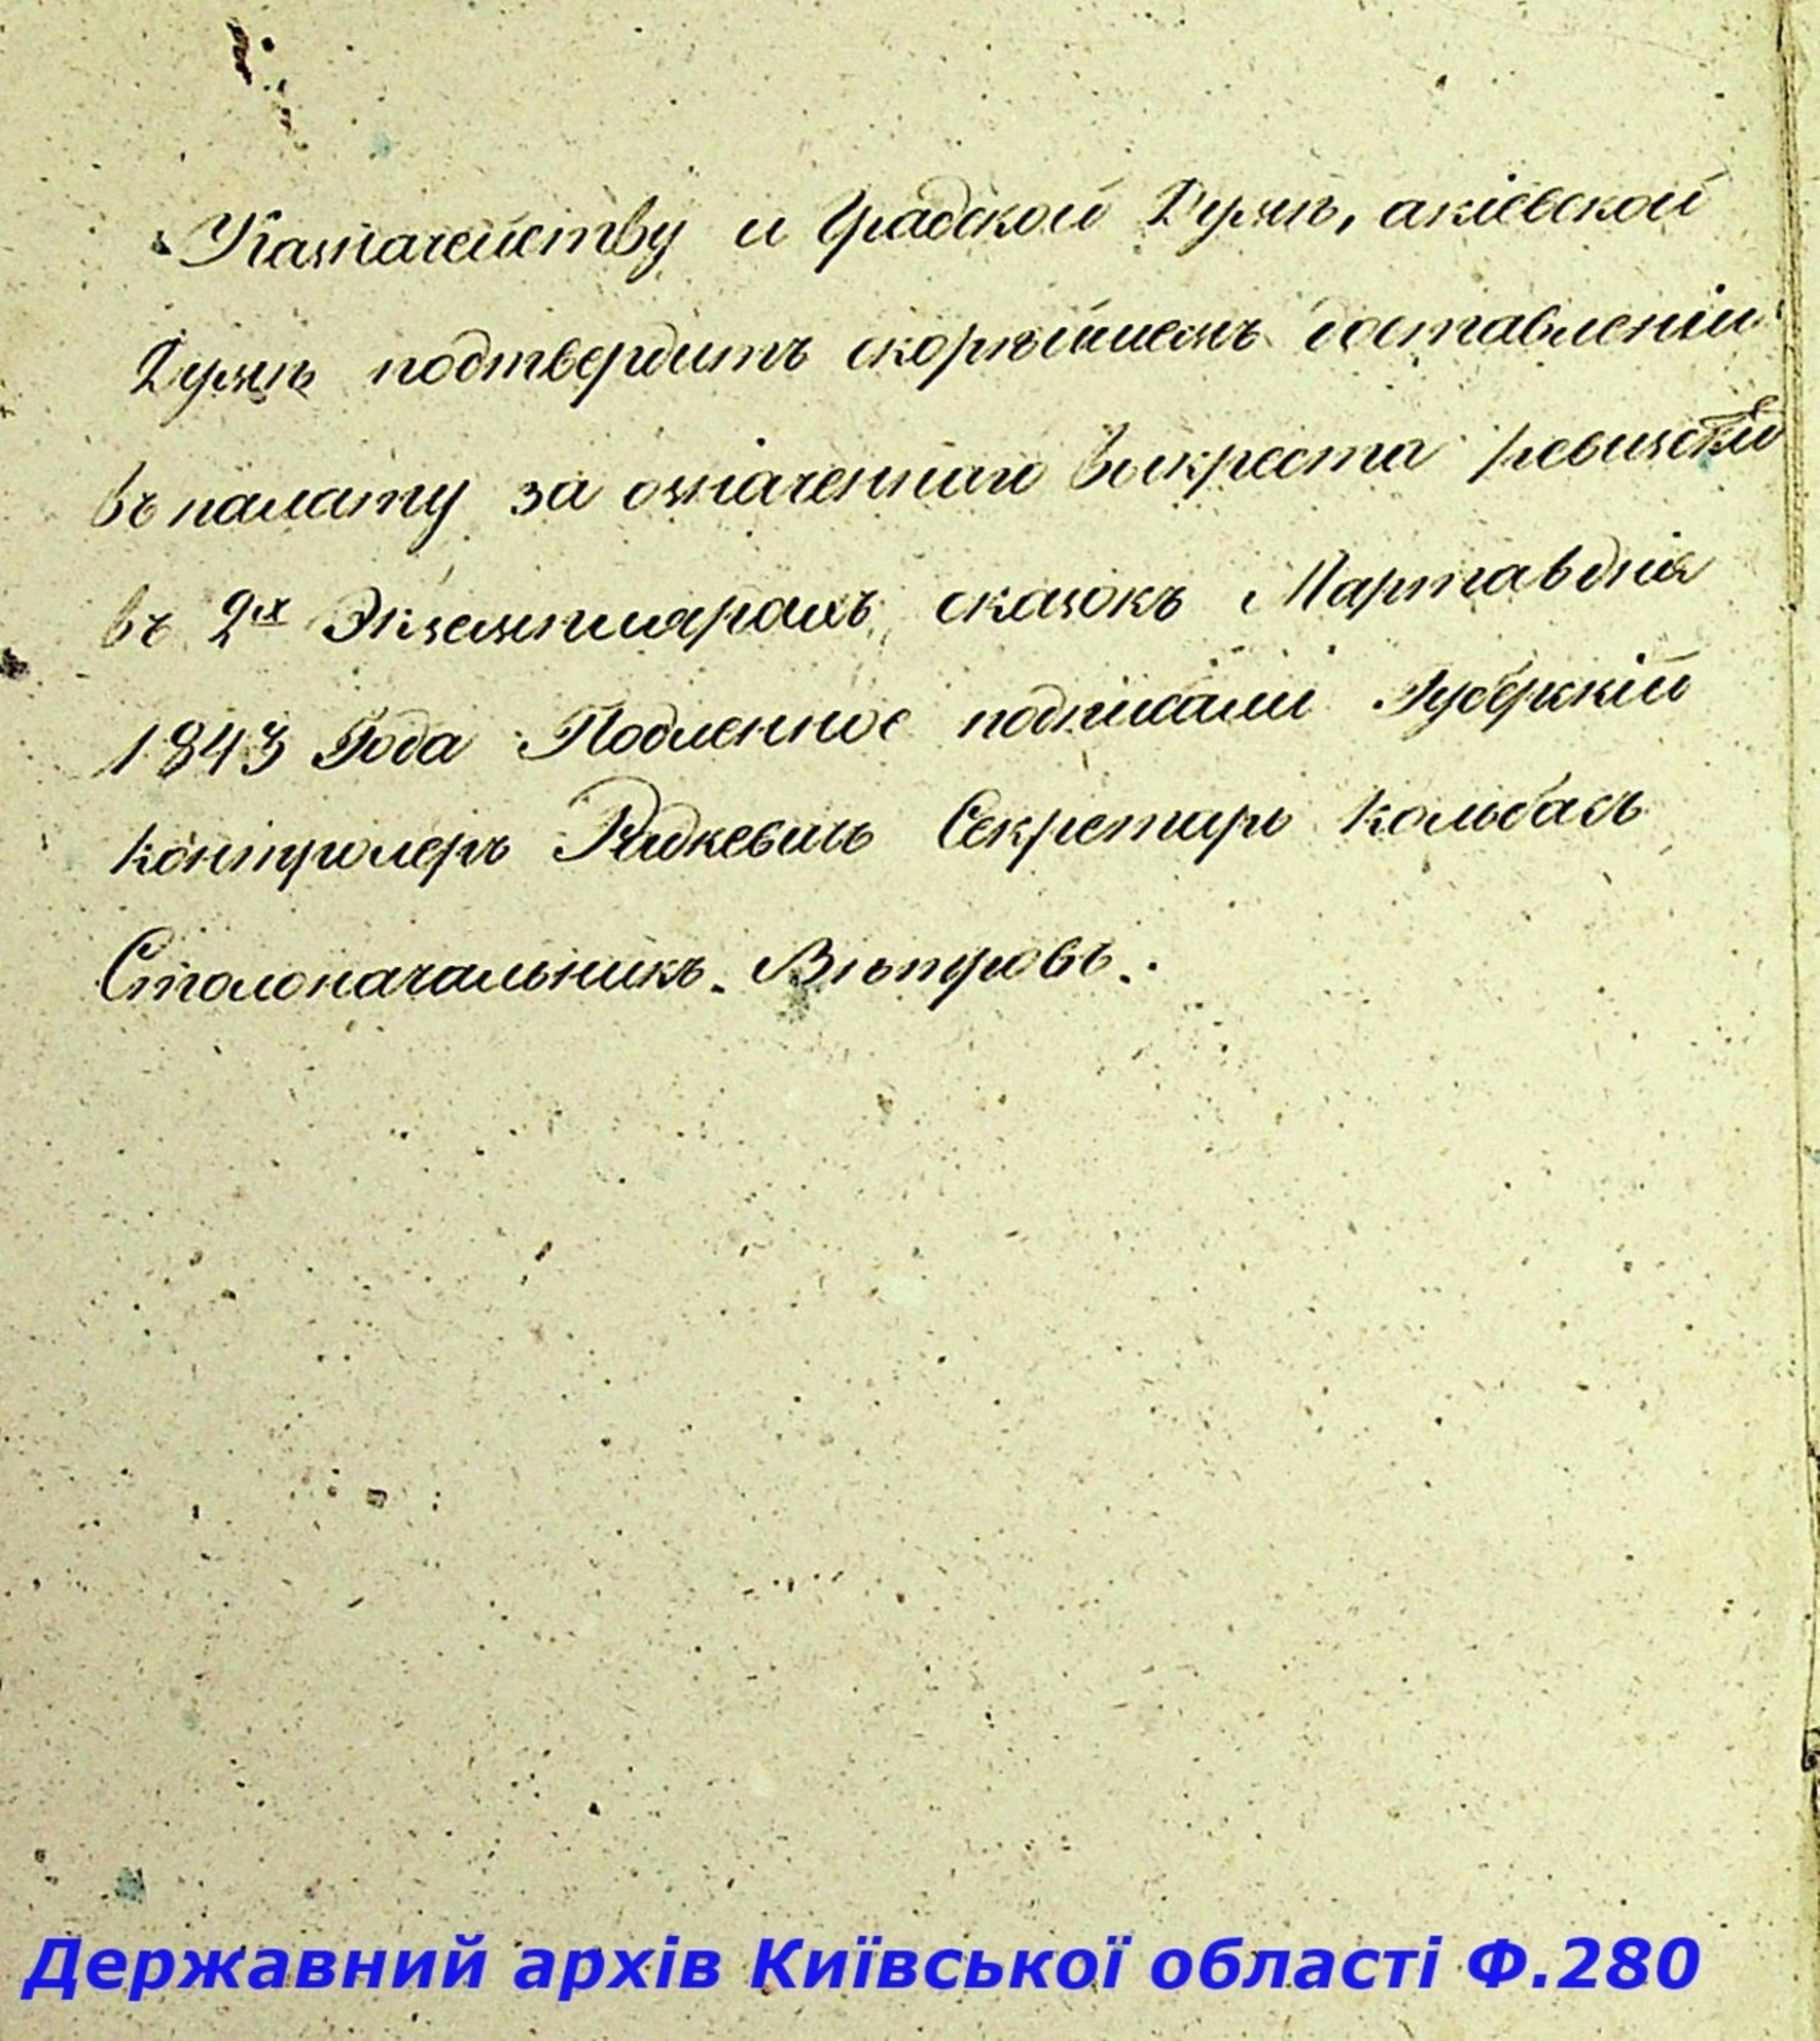 Казначейству и Градской Думѣ, акіевской
Думѣ подтвердить скорѣйшемъ доставленіи
въ палату за означеннаго выкреста ревизскіе
въ 2х Экземплярахъ сказокъ Марта в дня
1843 Года Подленное подписали Губерскій
контролеръ Секретарь Кольбасъ
Столоначальникъ. Вѣтровъ.
Державний архів Київської області Ф.280